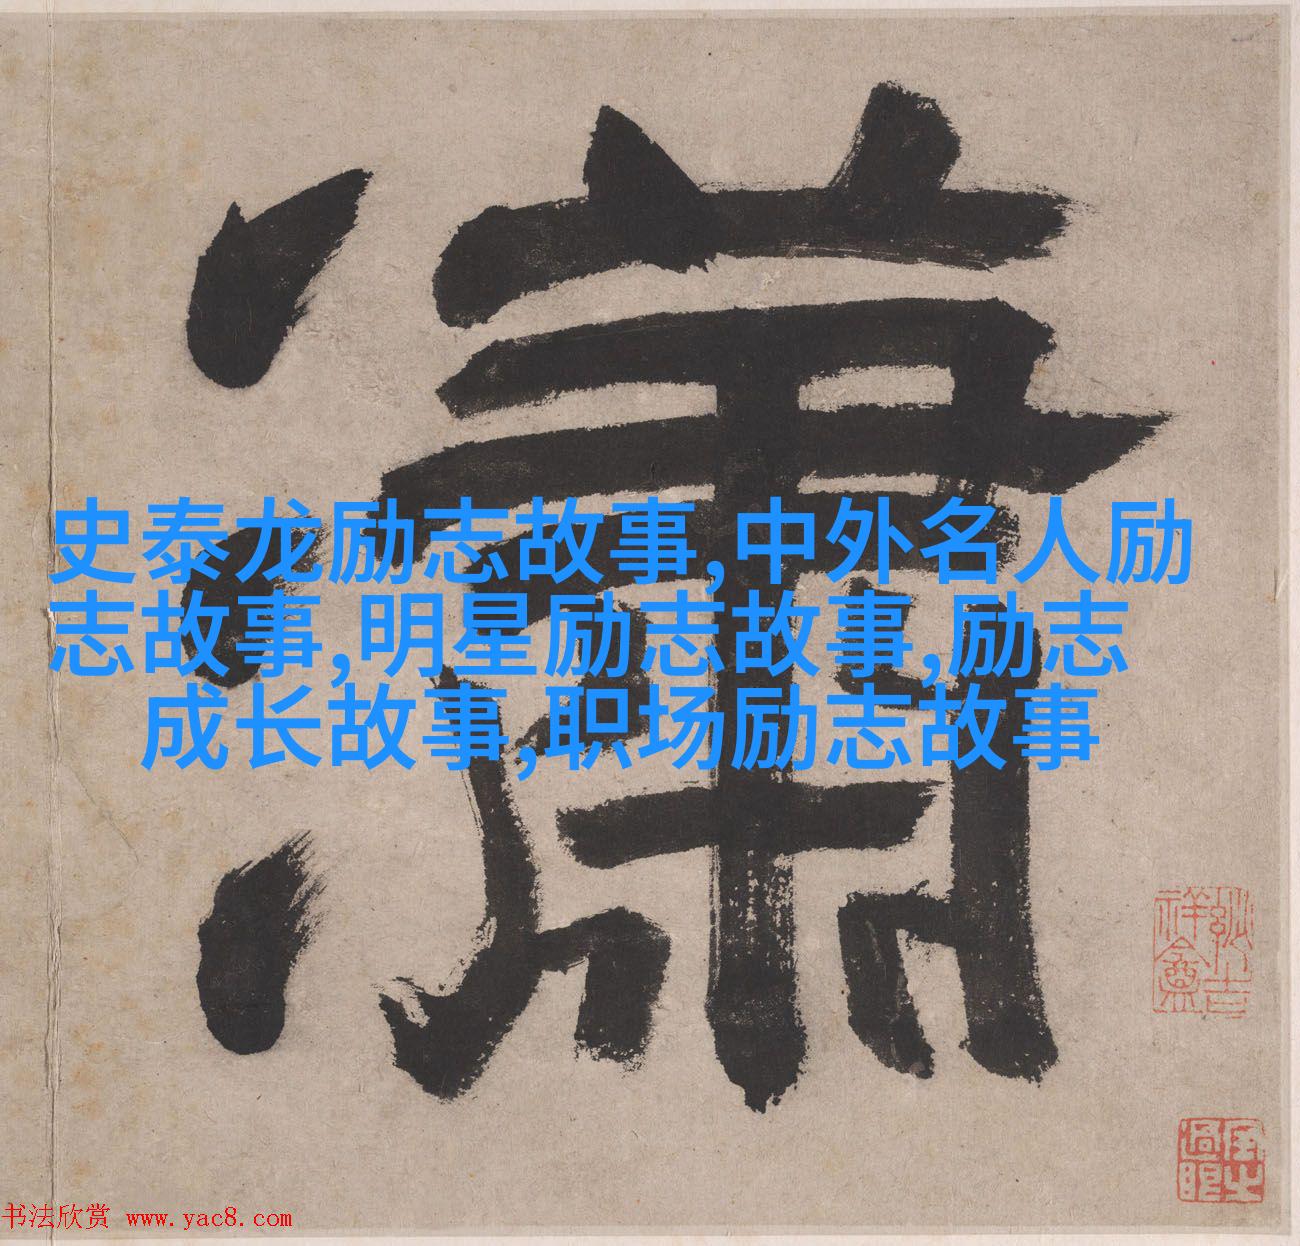 瀟
史泰龙励志故事,中外名人励
志故事,明星励志故事,励志
成长故事,职场励志故事
书法欣赏 www.yac8.com